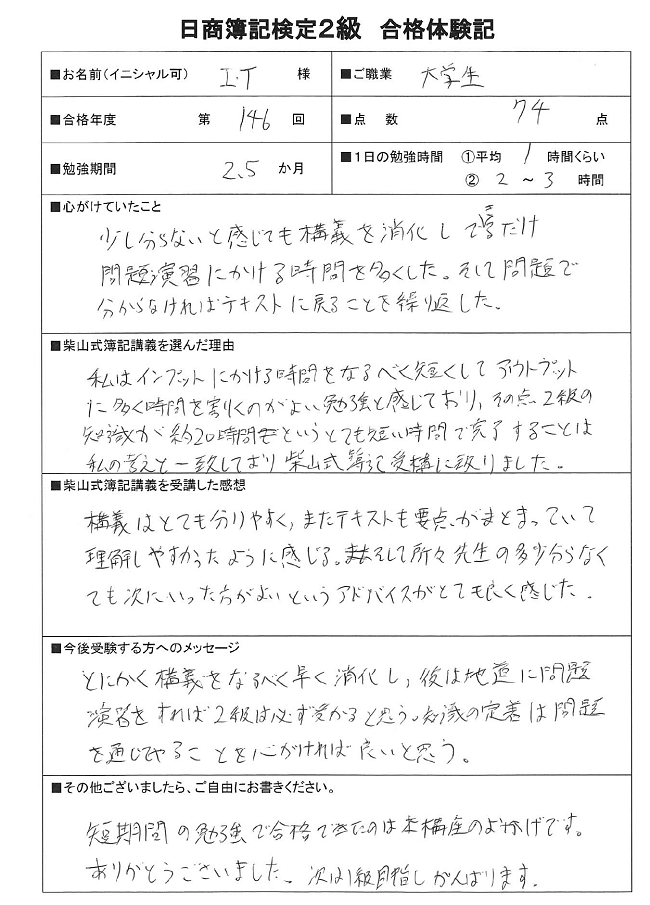 日商簿記検定2級 合格体験記
■お名前(イニシャル可) I.T 様 ■ご職業 大学生
■合格年度 第 146 回 ■点 数 74 点
■勉強期間 2.5 か月 ■1日の勉強時間 ①平均 1 時間くらい
② 2 ~ 3 時間
■心がけていたこと
少し分らないと感じても構義を消化して だけ
問題演習にかける時間を多くした。そして問題で
分からなければテキストに戻ることを繰り返した。
■柴山式簿記講義を選んだ理由
私はインプットにかける時間をなるべく短くしてアウトプット
に多く時間を割くのがよい勉強と感じており,その点2級の
知識が約20時間 というとても短い時間で完了することは
私の考えと一致しており柴山式簿記受構に致りました。
■柴山式簿記講義を受講した感想
構義はとても分りやすく,またテキストも要点がまとまっていて
理解しやすかったように感じる。そして所々先生の多少分らなく
ても次にいった方がよいというアドバイスがとても良く感じた.
■今後受験する方へのメッセージ
とにかく構義をなるべく早く消化し,後は地道に問題
演習をすれば2級は必ず受かると思う。知識の定着は問題
を通じてやることを心がければ良いと思う。
■その他ございましたら、ご自由にお書きください。
短期間の勉強で合格できたのは本構座のおかげです。
ありがとうございました。次は1級目指しがんばります.